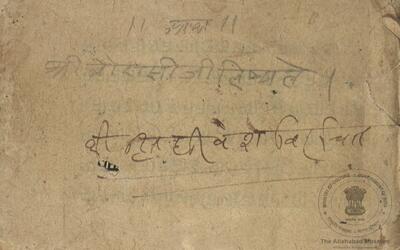 श्री चोरासी जी लिष्यते ॥
श्री हित हरिवंश विरचित
The Allahabad Museum